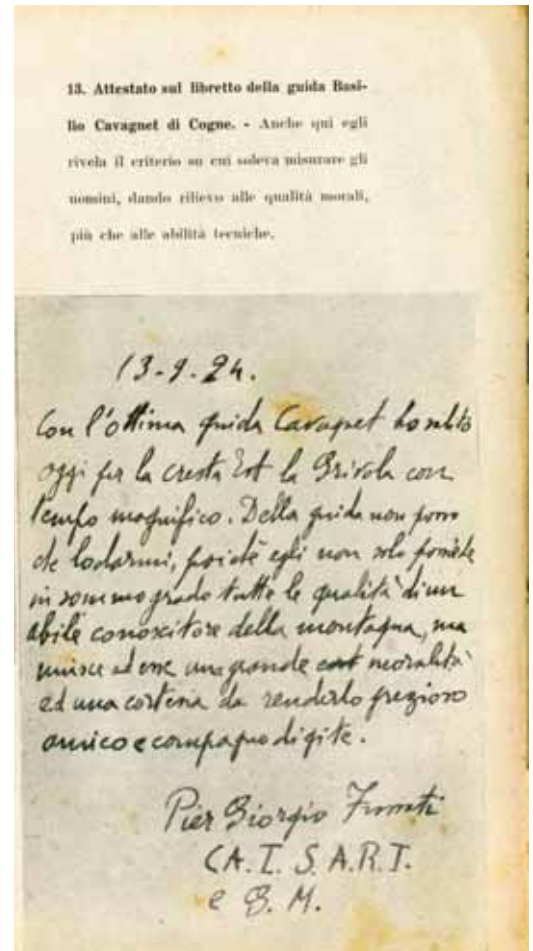 13. Attestato sul libretto della guida Basi-
lio Cavagnet di Cogne. - Anche qui egli
rivela il criterio su cui soleva misurare gli
uomini, dando rilievo alle qualità morali,
più che alle abilità tecniche.
13-9-24.
Con l'ottima guida Cavagnet ho salito
oggi per la cresta Est la Grivola con
tempo magnifico. Della guida non posso
che lodarmi, poichè egli non solo possiede
in sommo grado tutte le qualità di un
abile conoscitore della montagna, ma
unisce ad esse una grande moralità
ed una cortesia da renderlo prezioso
amico e compagno di gite.
Pier Giorgio Frassati
C.A.I. S.A.R.I.
e G. M.